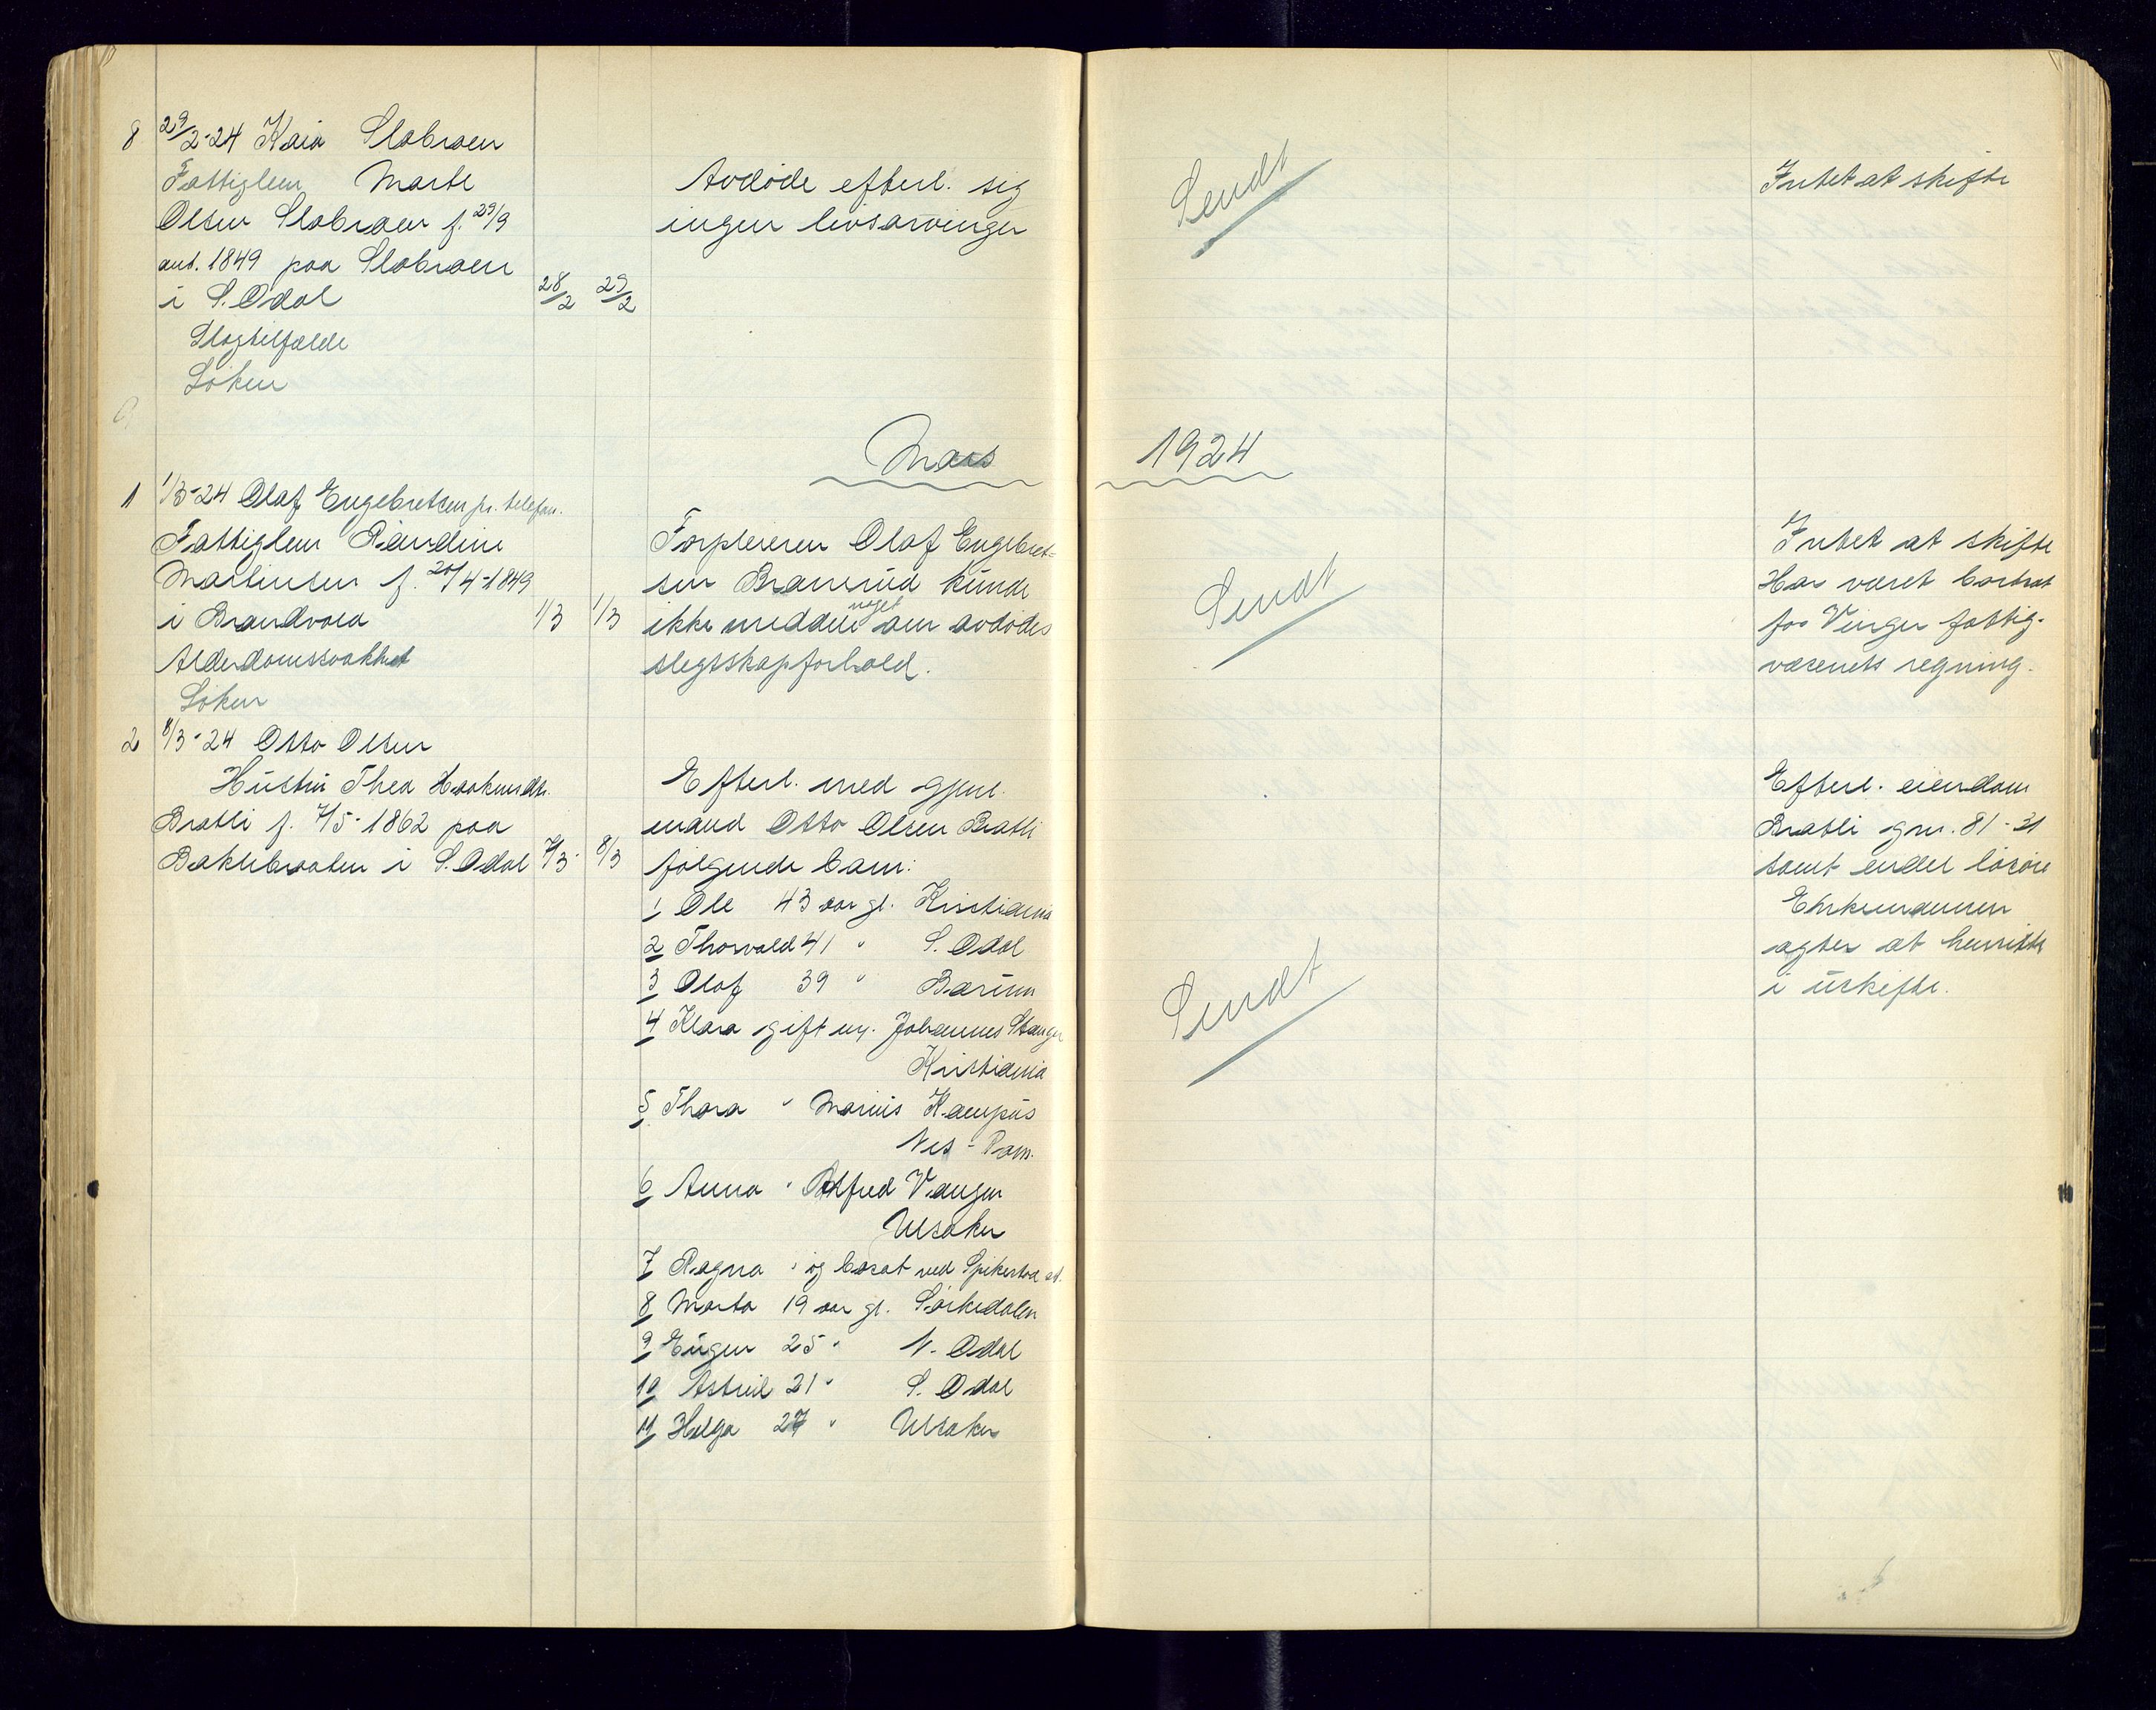 8 29/2-24 Kaia Slobraen
Fattiglem Marte
Olsen Slobraen f. 29/9
ant. 1849 paa Slobraen
i S. Odal 28/2 29/2
Slagtilfælde
Løken
Avdøde efterl. sig
ingen livsarvinger
Sendt
Intet at skifte
Mars 1924
1 1/3-24 Olaf Engebretsen pr. telefon.
Fattiglem Randine
Martinsen f. 20/4-1849
i Brandvold 1/3 1/3
Alderdomssvakhet
Løken
Forpleieren Olaf Engebret=
sen Bramrud kunde
ikke meddele noget om avdødes
slegtskapforhold.
Sendt
Intet at skifte
Har været bortsat
for Vinger fattig-
væsenets regning.
2 8/3-24 Otto Olsen
Hustru Thea Haakensdtr.
Bratli f. 7/5-1862 paa
Bakkebraaten i S. Odal 7/3- 8/3
Efterl. med gjenl.
mand Otto Olsen Bratli
følgende barn:
1 Ole 43 aar gl. Kristiania
2 Thorvald 41 " S. Odal
3 Olaf 39 " Bærum
4 Klara gift m. Johannes Stanger
Kristiania
5 Thora " Marius Kampus
Nes - Rom.
6 Anna " Alfred Vangen
Ullsaker
7 Ragna " og bosat ved Spikestad st.
8 Marta 19 aar gl. Sørkedalen
9 Eugen 25 " N. Odal
10 Astrid 21 " S. Odal
11 Helga 27 " Ullsaker
Sendt
Efterl. eiendom
Bratli gnr. 81-31
samt endel løsøre
Enkemannen
agter at hensitte
i uskifte.